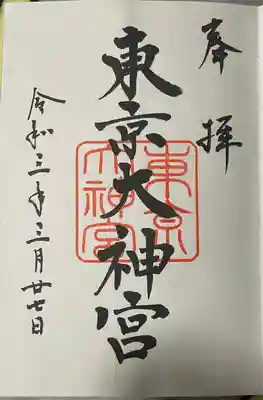 奉拝
東京大神宮
東京
大神宮
令和三年三月廿七日